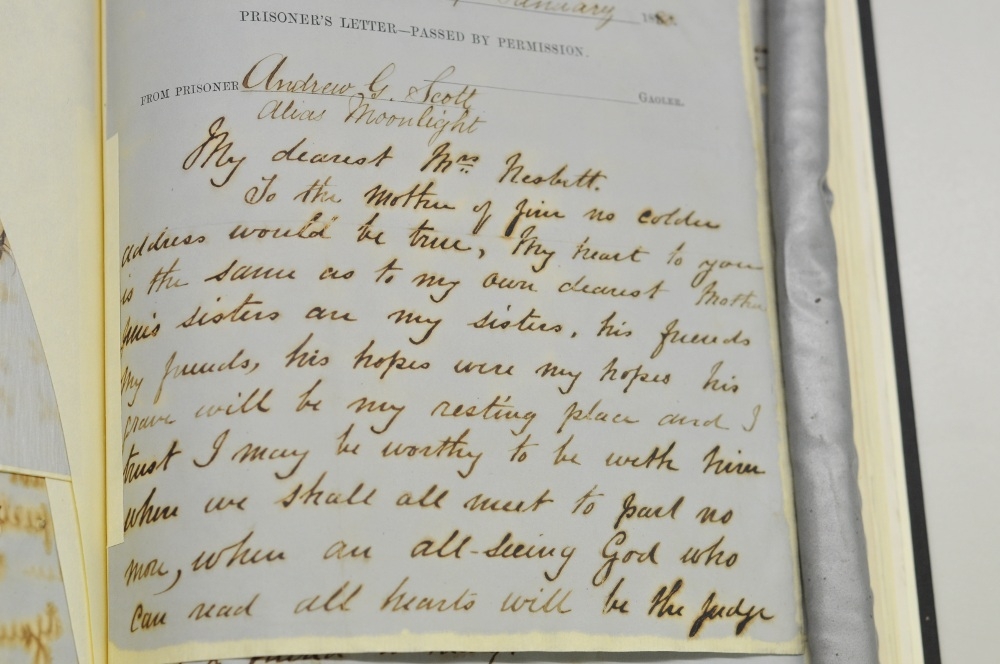 January 18
PRISONER'S LETTER—PASSED BY PERMISSION.
GAOLER.
FROM PRISONER Andrew G. Scott
Alias Moonlight
My dearest Mrs Nesbitt.
To the Mother of Jim no colder
address would be true, My heart to you
is the same as to my own dearest Mother
Jim's sisters are my sisters, his friends
my friends, his hopes were my hopes his
grave will be my resting place and I
trust I may be worthy to be with him
when we shall all meet to part no
more, when an all-seeing God who
can read all hearts will be the Judge